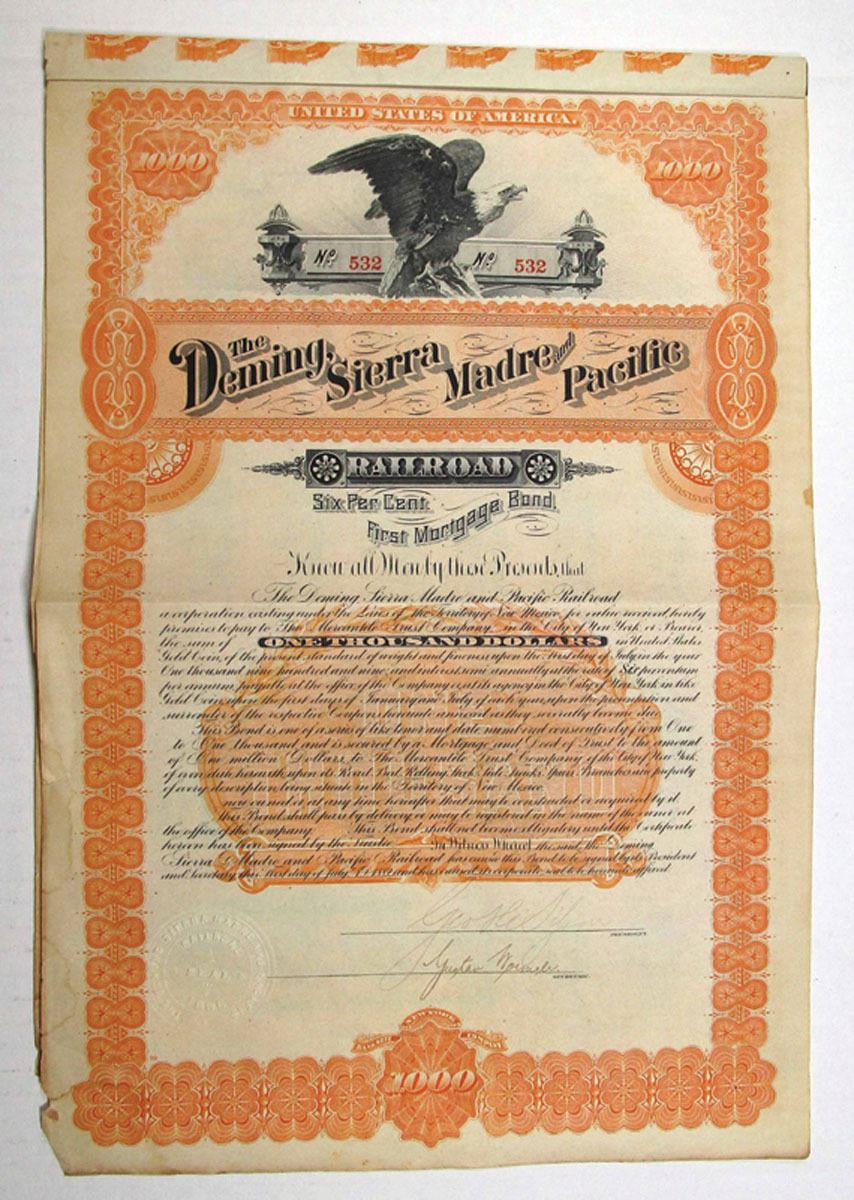 UNITED STATES OF AMERICA.
1000 1000
No. 532 No. 532
The Deming, Sierra Madre and Pacific
RAILROAD
Six Per Cent.
First Mortgage Bond.
Know all Men by these Presents, that
The Deming Sierra Madre and Pacific Railroad
a corporation existing under the Laws of the Territory of New Mexico, for value received, hereby
promises to pay to The Mercantile Trust Company, in the City of New York or Bearer,
the sum of ONE THOUSAND DOLLARS in United States
Gold Coin, of the present standard of weight and fineness upon the First day of July in the year
One thousand nine hundred and nine, and interest semi-annually at the rate of Six per centum
per annum, payable at the office of the Company or at its agency in the City of New York in like
Gold Coin upon the first days of January and July of each year, upon the presentation and
surrender of the respective Coupons hereunto annexed as they severally become due.
This Bond is one of a series of like tenor and date numbered consecutively from One
to One thousand, and is secured by a Mortgage and Deed of Trust to the amount
of One million Dollars, to The Mercantile Trust Company of the City of New York,
of even date herewith upon its Road Bed, Rolling Stock, Side Tracks, Spurs, Branches and property
of every description, being situate in the Territory of New Mexico,
now owned or at any time hereafter that may be constructed or acquired by it.
This Bond shall pass by delivery or may be registered in the name of the owner at
the office of the Company. This Bond shall not become obligatory until the Certificate
hereon has been signed by the Trustee. In Witness Whereof, the said, the Deming
Sierra Madre and Pacific Railroad has caused this Bond to be signed by its President
and Secretary this first day of July and has caused its corporate seal to be hereunto affixed.
PRESIDENT.
Gustav
SECRETARY.
NEW YORK
COMPANY
1000